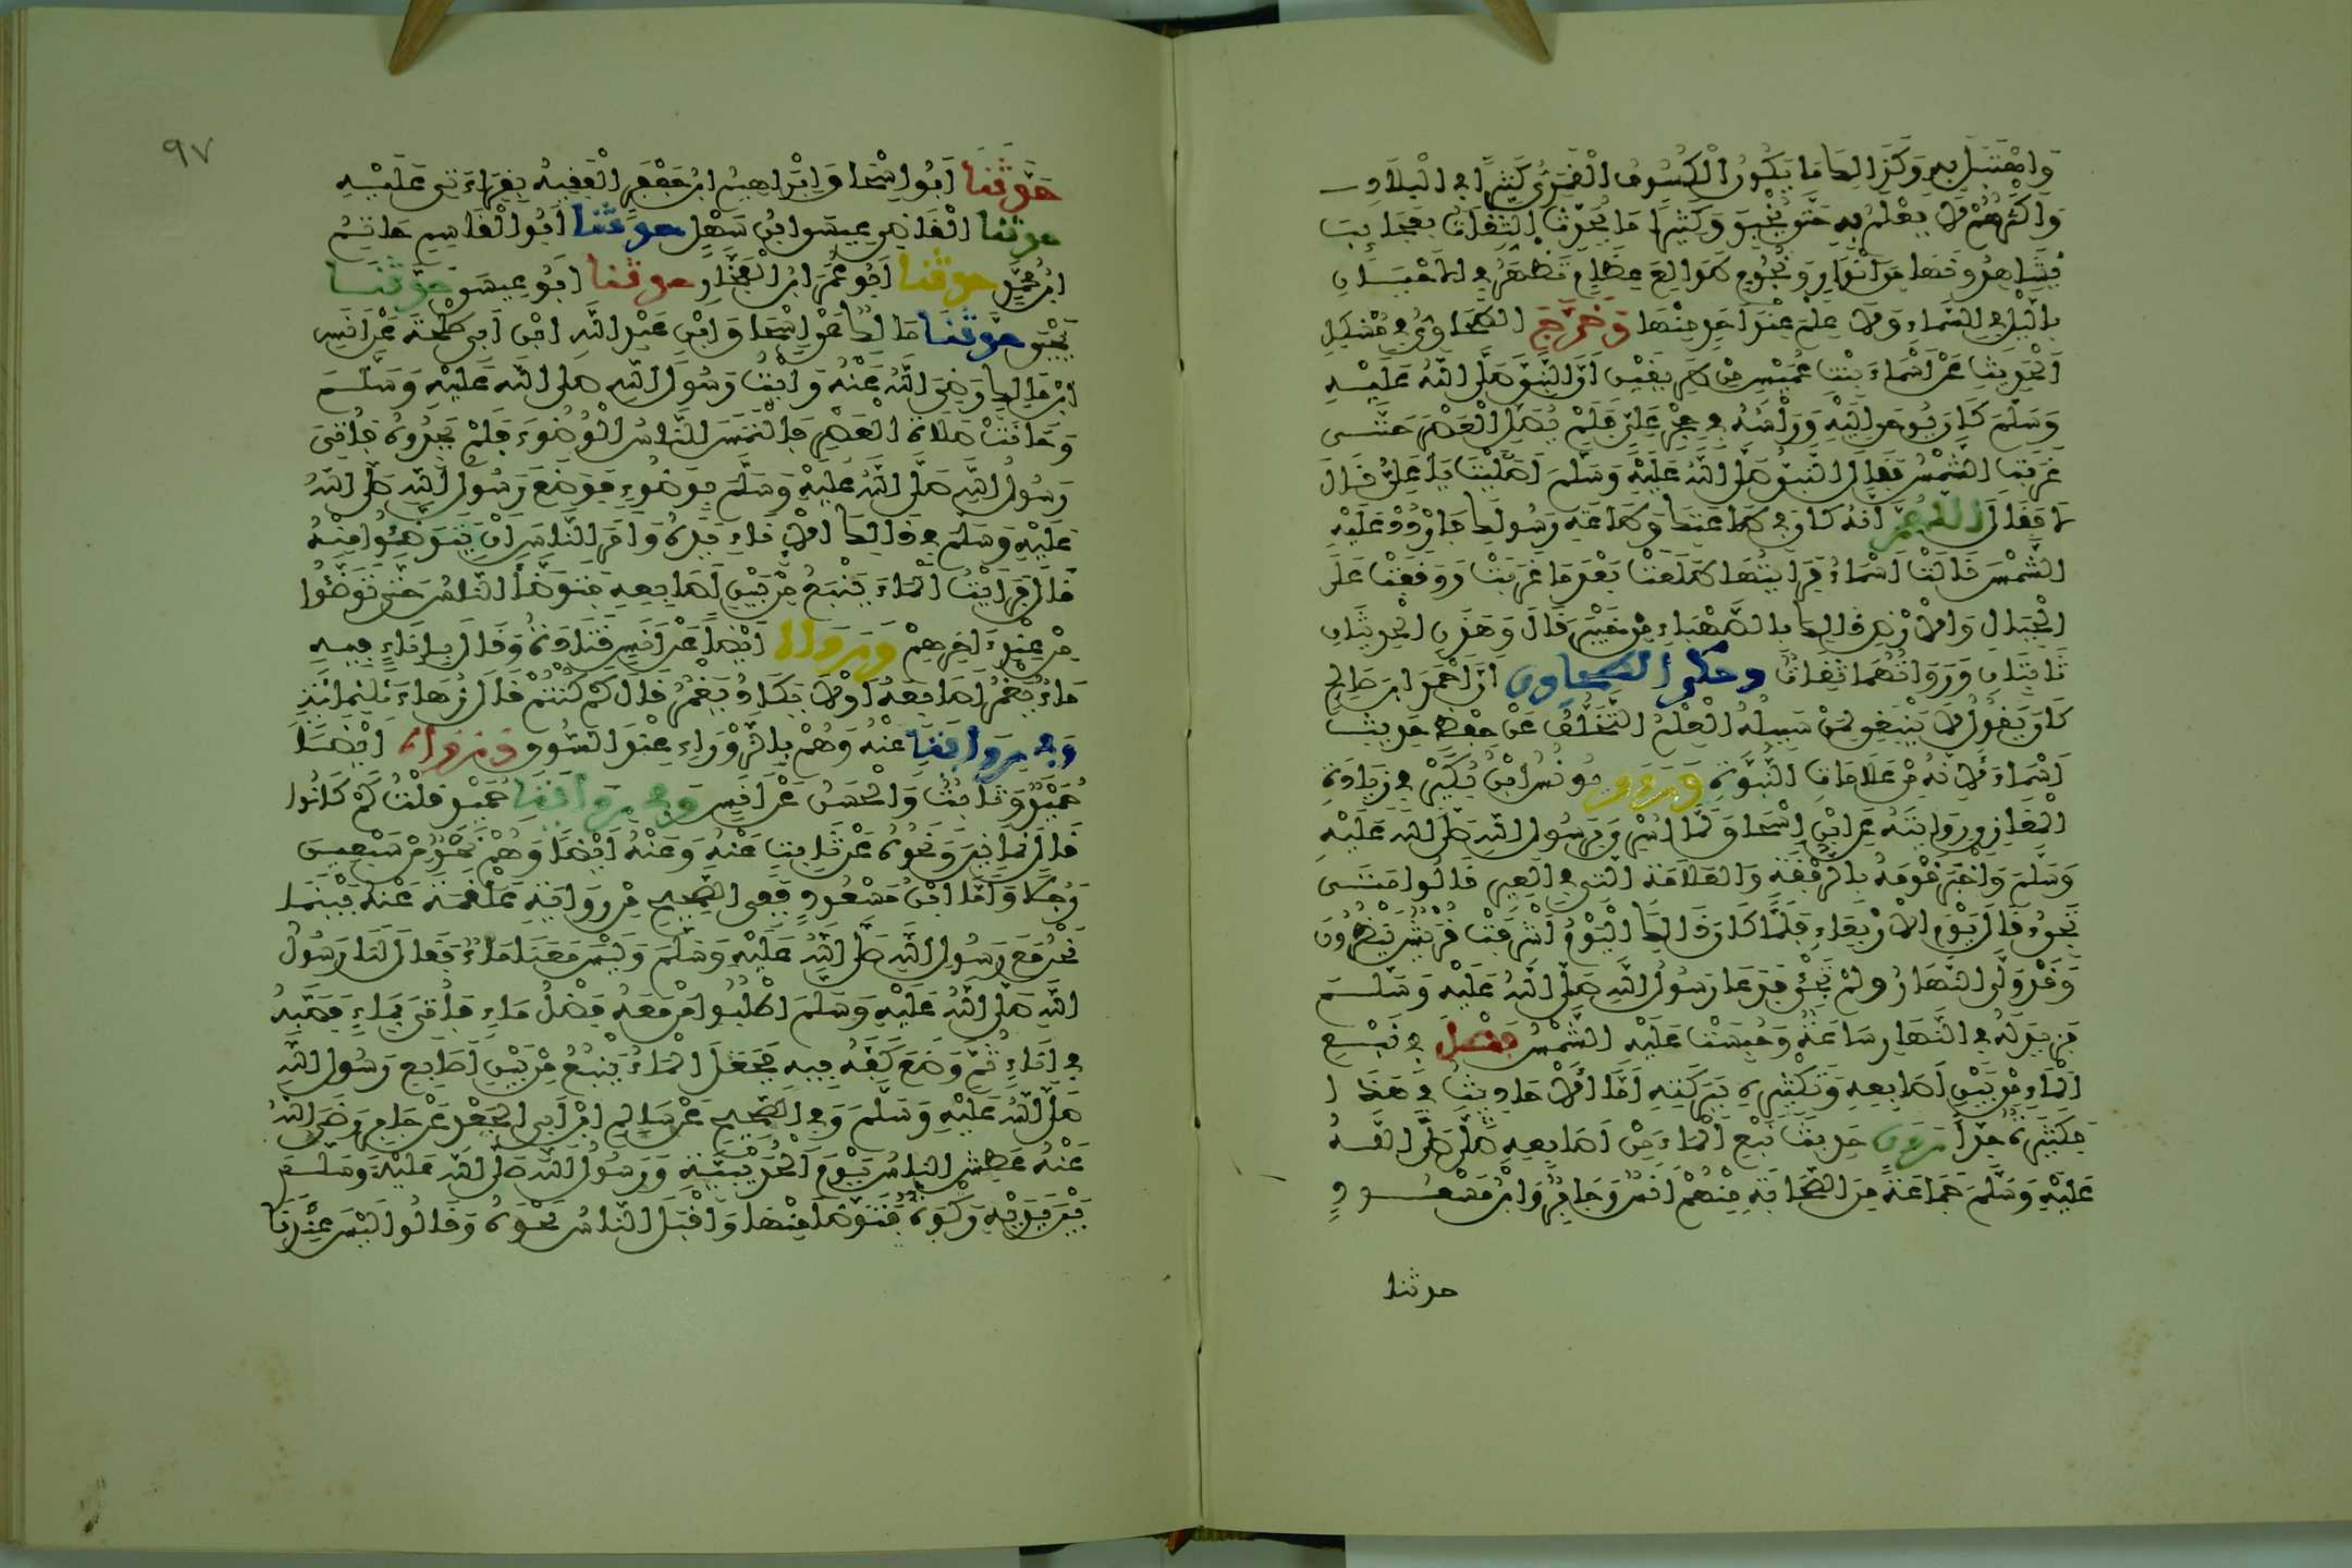 وَاهْتَبَلَ بِهِ وَكَذَالِكَ مَا يَكُونُ الْكُسُوفُ الْقَمَرِيُّ كَثِيراً فِي الْبِلَادِ
وَأَكْثَرُهُمْ لَا يَعْلَمُ بِهِ حَتَّى يُخْبَرَ وَكَثِيراً مَا يُحَدِّثُ الثِّقَاتُ بِعَجَائِبَ
يُشَاهِدُونَهَا مِنْ أَنْوَارٍ وَنُجُومٍ طَوَالِعَ عِظَامٍ تَظْهَرُ فِي الْأَحْيَانِ
بِاللَّيْلِ فِي السَّمَاءِ وَلَا عِلْمَ عِنْدَ أَحَدٍ مِنْهَا وَخَرَّجَ الطَّحَاوِيُّ فِي مُشْكِلِ
الْحَدِيثِ عَنْ أَسْمَاءَ بِنْتِ عُمَيْسٍ مِنْ طَرِيقَيْنِ أَنَّ النَّبِيَّ صَلَّى اللَّهُ عَلَيْهِ
وَسَلَّمَ كَانَ يُوحَى إِلَيْهِ وَرَأْسُهُ فِي حِجْرِ عَلِيٍّ فَلَمْ يُصَلِّ الْعَصْرَ حَتَّى
غَرَبَتِ الشَّمْسُ فَقَالَ النَّبِيُّ صَلَّى اللَّهُ عَلَيْهِ وَسَلَّمَ أَصَلَّيْتَ يَا عَلِيُّ قَالَ
لَا فَقَالَ اللَّهُمَّ إِنَّهُ كَانَ فِي طَاعَتِكَ وَطَاعَةِ رَسُولِكَ فَارْدُدْ عَلَيْهِ
الشَّمْسَ قَالَتْ أَسْمَاءُ فَرَأَيْتُهَا طَلَعَتْ بَعْدَ مَا غَرَبَتْ وَوَقَفَتْ عَلَى
الْجِبَالِ وَالْأَرْضِ وَذَالِكَ بِالصَّهْبَاءِ مِنْ خَيْبَرَ قَالَ وَهَذَانِ الْحَدِيثَانِ
ثَابِتَانِ وَرُوَاتُهُمَا ثِقَاتٌ وحكى الطحاوي أَنَّ أَحْمَدَ ابْنَ صَالِحٍ
كَانَ يَقُولُ لَا يَنْبَغِي لِمَنْ سَبِيلُهُ الْعِلْمُ التَّخَلُّفُ عَنْ حِفْظِ حَدِيثِ
أَسْمَاءَ لِأَنَّهُ مِنْ عَلَامَاتِ النُّبُوَّةِ وَرَوَى يُونُسُ ابْنُ بُكَيْرٍ فِي زِيَادَةِ
الْمَغَازِي رِوَايَتَهُ عَنِ ابْنِ إِسْحَاقَ لَمَّا أُسْرِيَ بِرَسُولِ اللَّهِ صَلَّى اللَّهُ عَلَيْهِ
وَسَلَّمَ وَأَخْبَرَ قَوْمَهُ بِالرُّفْقَةِ وَالْعَلَامَةِ الَّتِي فِي الْعِيرِ قَالُوا مَتَى
تَجِيءُ قَالَ يَوْمَ الْأَرْبِعَاءِ فَلَمَّا كَانَ ذَالِكَ الْيَوْمُ أَشْرَفَتْ قُرَيْشٌ يَنْظُرُونَ
وَقَدْ وَلَّى النَّهَارُ وَلَمْ تَجِئْ فَدَعَا رَسُولُ اللَّهِ صَلَّى اللَّهُ عَلَيْهِ وَسَلَّمَ
فَزِيدَ لَهُ فِي النَّهَارِ سَاعَةٌ وَحُبِسَتْ عَلَيْهِ الشَّمْسُ فَصْلٌ فِي نَبْعِ
الْمَاءِ مِنْ بَيْنِ أَصَابِعِهِ وَتَكْثِيرِهِ بِبَرَكَتِهِ أَمَّا الْأَحَادِيثُ فِي هَذَا
فَكَثِيرَةٌ جِدًّا رَوَى حَدِيثَ نَبْعِ الْمَاءِ مِنْ أَصَابِعِهِ صَلَّى اللَّهُ
عَلَيْهِ وَسَلَّمَ جَمَاعَةٌ مِنَ الصَّحَابَةِ مِنْهُمْ أَنَسٌ وَجَابِرٌ وَابْنُ مَسْعُودٍ
حدثنا
٩٧
حَدَّثَنَا أَبُو إِسْحَاقَ إِبْرَاهِيمُ ابْنُ جَعْفَرٍ الْفَقِيهُ بِقِرَاءَتِي عَلَيْهِ
حدثنا الْقَاضِي عِيسَى ابْنُ سَهْلٍ حدثنا أَبُو الْقَاسِمِ حَاتِمُ
ابْنُ مُحَمَّدٍ حدثنا أَبُو عُمَرَ ابْنُ الْفَخَّارِ حدثنا أَبُو عِيسَى حَدَّثَنَا
يَحْيَى حَدَّثَنَا مَالِكٌ عَنْ إِسْحَاقَ ابْنِ عَبْدِ اللَّهِ ابْنِ أَبِي طَلْحَةَ عَنْ أَنَسِ
ابْنِ مَالِكٍ رَضِيَ اللَّهُ عَنْهُ رَأَيْتُ رَسُولَ اللَّهِ صَلَّى اللَّهُ عَلَيْهِ وَسَلَّمَ
وَحَانَتْ صَلَاةُ الْعَصْرِ فَالْتَمَسَ النَّاسُ الْوُضُوءَ فَلَمْ يَجِدُوهُ فَأُتِيَ
رَسُولُ اللَّهِ صَلَّى اللَّهُ عَلَيْهِ وَسَلَّمَ بِوَضُوءٍ فَوَضَعَ رَسُولُ اللَّهِ صَلَّى اللَّهُ
عَلَيْهِ وَسَلَّمَ فِي ذَالِكَ الْإِنَاءِ يَدَهُ وَأَمَرَ النَّاسَ أَنْ يَتَوَضَّئُوا مِنْهُ
قَالَ فَرَأَيْتُ الْمَاءَ يَنْبَعُ مِنْ بَيْنِ أَصَابِعِهِ فَتَوَضَّأَ النَّاسُ حَتَّى تَوَضَّئُوا
مِنْ عِنْدِ آخِرِهِمْ وَرَوَاهُ أَيْضاً عَنْ أَنَسٍ قَتَادَةُ وَقَالَ بِإِنَاءٍ فِيهِ
مَاءٌ يَغْمُرُ أَصَابِعَهُ أَوْ لَا يَكَادُ يَغْمُرُ قَالَ كَمْ كُنْتُمْ قَالَ زُهَاءَ ثَلَاثِمِائَةٍ
وَفِي رِوَايَةٍ عَنْهُ وَهُمْ بِالزَّوْرَاءِ عِنْدَ السُّوقِ وَرَوَاهُ أَيْضاً
حُمَيْدٌ وَثَابِتٌ وَالْحَسَنُ عَنْ أَنَسٍ وَفِي رِوَايَةِ حُمَيْدٍ قُلْتُ كَمْ كَانُوا
قَالَ ثَمَانِينَ وَنَحْوُهُ عَنْ ثَابِتٍ عَنْهُ وَعَنْهُ أَيْضاً وَهُمْ نَحْوٌ مِنْ سَبْعِينَ
رَجُلاً وَأَمَّا ابْنُ مَسْعُودٍ فَفِي الصَّحِيحِ مِنْ رِوَايَةِ عَلْقَمَةَ عَنْهُ بَيْنَمَا
نَحْنُ مَعَ رَسُولِ اللَّهِ صَلَّى اللَّهُ عَلَيْهِ وَسَلَّمَ وَلَيْسَ مَعَنَا مَاءٌ فَقَالَ لَنَا رَسُولُ
اللَّهِ صَلَّى اللَّهُ عَلَيْهِ وَسَلَّمَ اطْلُبُوا مَنْ مَعَهُ فَضْلُ مَاءٍ فَأُتِيَ بِمَاءٍ فَصَبَّهُ
فِي إِنَاءٍ ثُمَّ وَضَعَ كَفَّهُ فِيهِ فَجَعَلَ الْمَاءُ يَنْبُعُ مِنْ بَيْنِ أَصَابِعِ رَسُولِ اللَّهِ
صَلَّى اللَّهُ عَلَيْهِ وَسَلَّمَ وَفِي الصَّحِيحِ عَنْ سَالِمِ ابْنِ أَبِي الْجَعْدِ عَنْ جَابِرٍ رَضِيَ اللَّهُ
عَنْهُ عَطِشَ النَّاسُ يَوْمَ الْحُدَيْبِيَةِ وَرَسُولُ اللَّهِ صَلَّى اللَّهُ عَلَيْهِ وَسَلَّمَ
بَيْنَ يَدَيْهِ رَكْوَةٌ فَتَوَضَّأَ مِنْهَا وَأَقْبَلَ النَّاسُ نَحْوَهُ وَقَالُوا لَيْسَ عِنْدَنَا